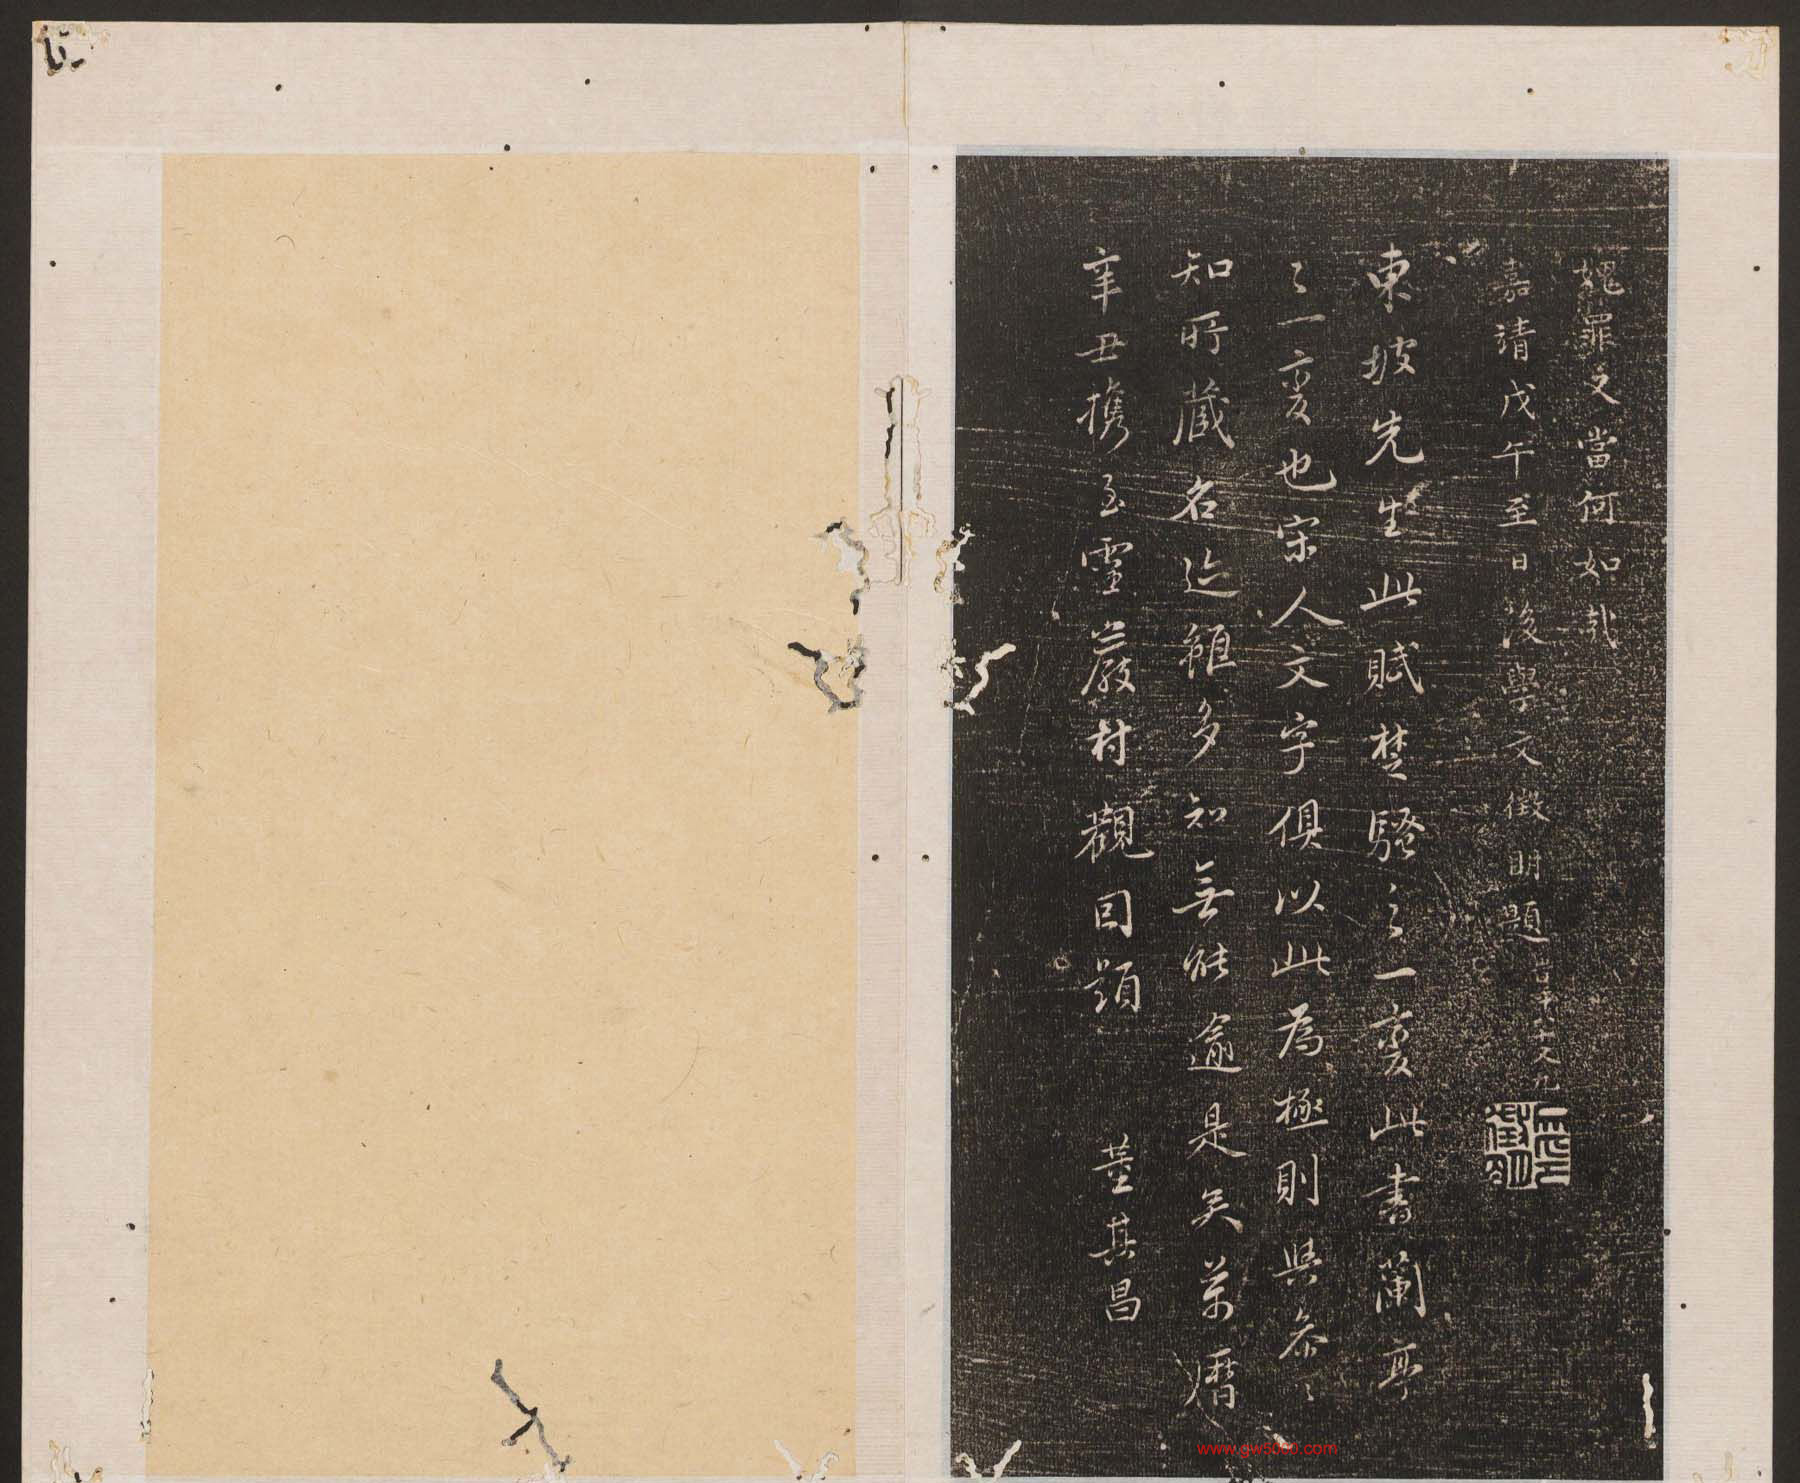 愧罪又當何如哉
嘉靖戊午至日後學文徵明題時年八十又九
東坡先生此賦楚騷之一變此書蘭亭
之一變也宋人文字俱以此為極則與參參
知所藏名迹雖多知無能逾是矣萬曆
辛丑携至靈巖村觀因題 董其昌
www.gw5000.com